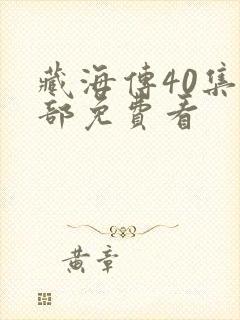 藏海傳40集
部免費看
黄章